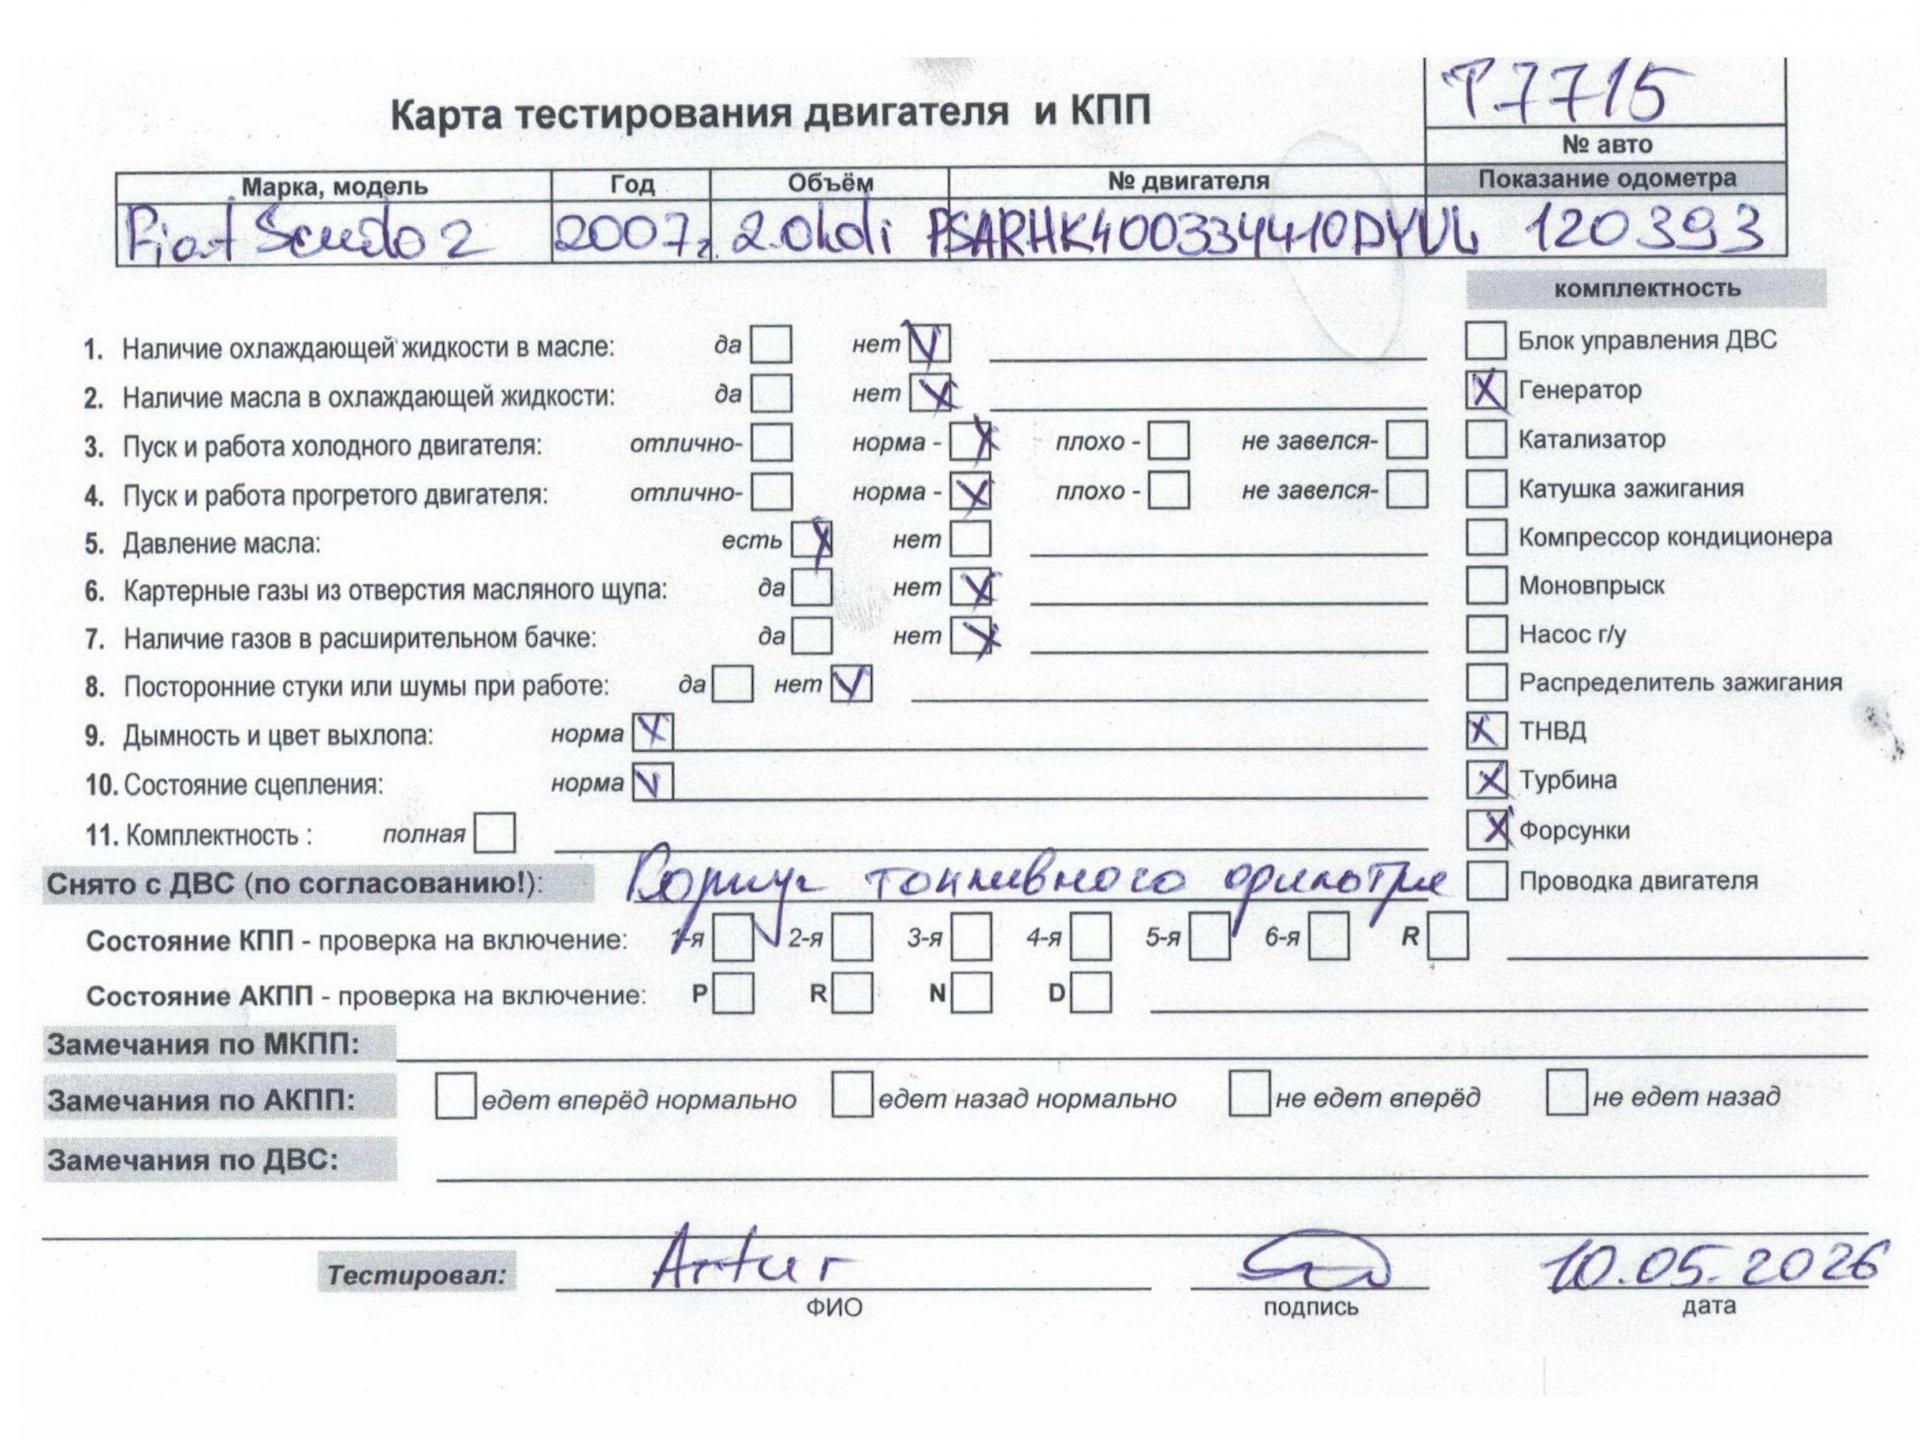 T7715
Карта тестирования двигателя и КПП
№ авто
Марка, модель Год Объём № двигателя Показание одометра
Fiat Scudo 2 2007г. 2.0hdi PSARHK400334410DYUL 120393
комплектность
1. Наличие охлаждающей жидкости в масле: да нет V
Блок управления ДВС
2. Наличие масла в охлаждающей жидкости: да нет X
X Генератор
3. Пуск и работа холодного двигателя: отлично- норма - X плохо - не завелся-
Катализатор
4. Пуск и работа прогретого двигателя: отлично- норма - X плохо - не завелся-
Катушка зажигания
5. Давление масла: есть X нет
Компрессор кондиционера
6. Картерные газы из отверстия масляного щупа: да нет X
Моновпрыск
7. Наличие газов в расширительном бачке: да нет X
Насос г/у
8. Посторонние стуки или шумы при работе: да нет V
Распределитель зажигания
9. Дымность и цвет выхлопа: норма X
X ТНВД
10. Состояние сцепления: норма V
X Турбина
11. Комплектность : полная
X Форсунки
Снято с ДВС (по согласованию!): Корпус топливного фильтра
Проводка двигателя
Состояние КПП - проверка на включение: 1-я 2-я 3-я 4-я 5-я 6-я R
Состояние АКПП - проверка на включение: P R N D
Замечания по МКПП:
Замечания по АКПП: едет вперёд нормально едет назад нормально не едет вперёд не едет назад
Замечания по ДВС:
Тестировал: Artur 10.05.2026
ФИО подпись дата